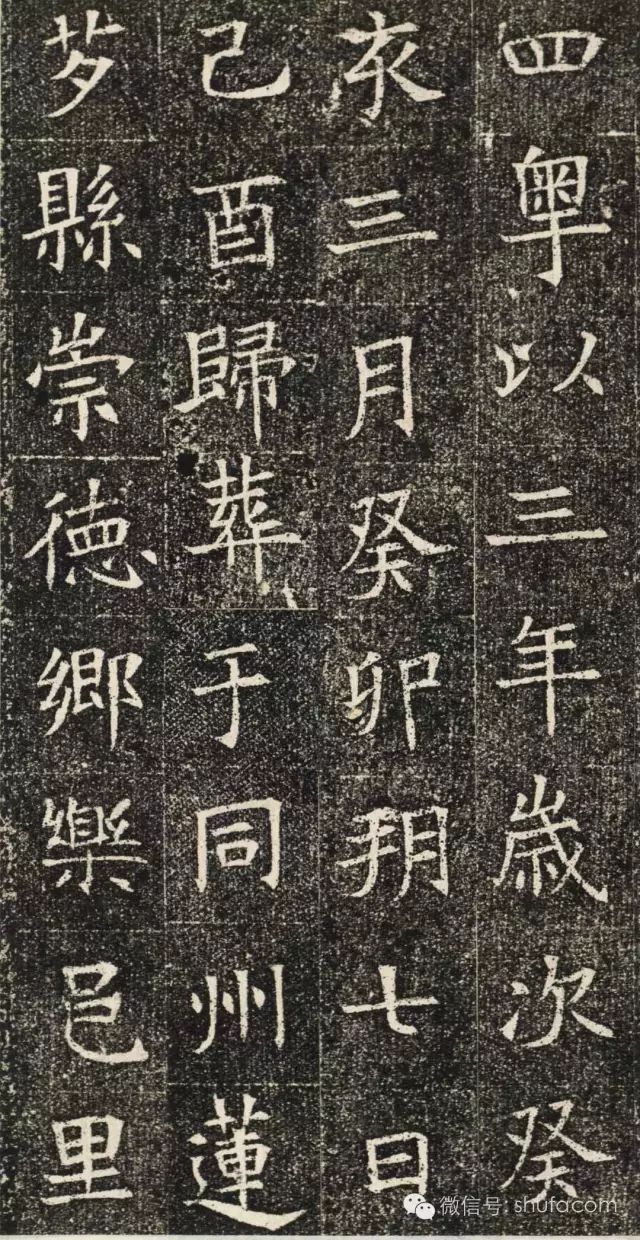 四粤以三年歲次癸
亥三月癸卯朔七日
己酉歸葬于同州蓮
芍縣崇徳鄉樂邑里
微信号: shufacom